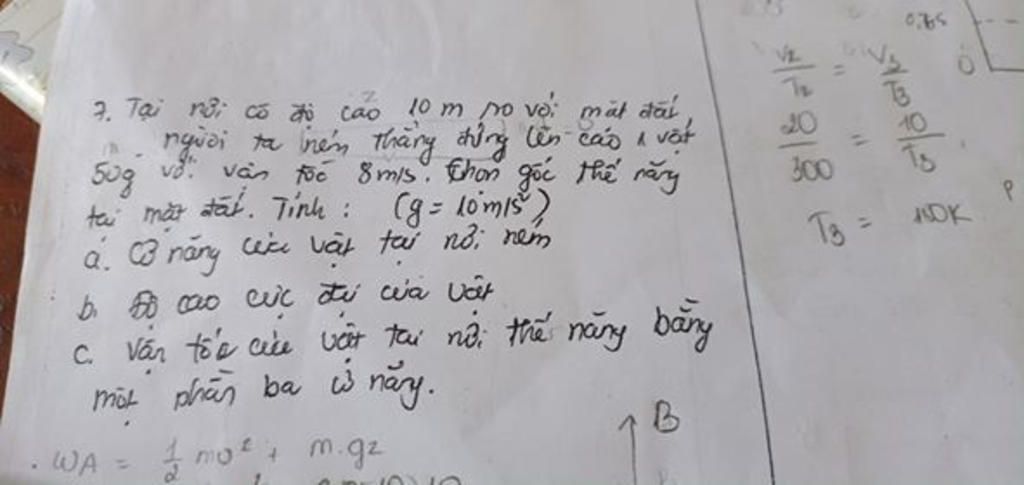 7. Tại nơi có độ cao 10 m so với mặt đất,
người ta ném thẳng đứng lên cao 1 vật
50g với vận tốc 8m/s. Chọn gốc thế năng
tại mặt đất. Tính : (g = 10m/s²)
a. Cơ năng của vật tại nơi ném
b. Độ cao cực đại của vật
c. Vận tốc của vật tại nơi thế năng bằng
một phần ba cơ năng.
. WA = 1/2 mv² + m.gz
B
V2/T2 = V3/T3
20/300 = 10/T3
T3 = 150K
0,765
0
P